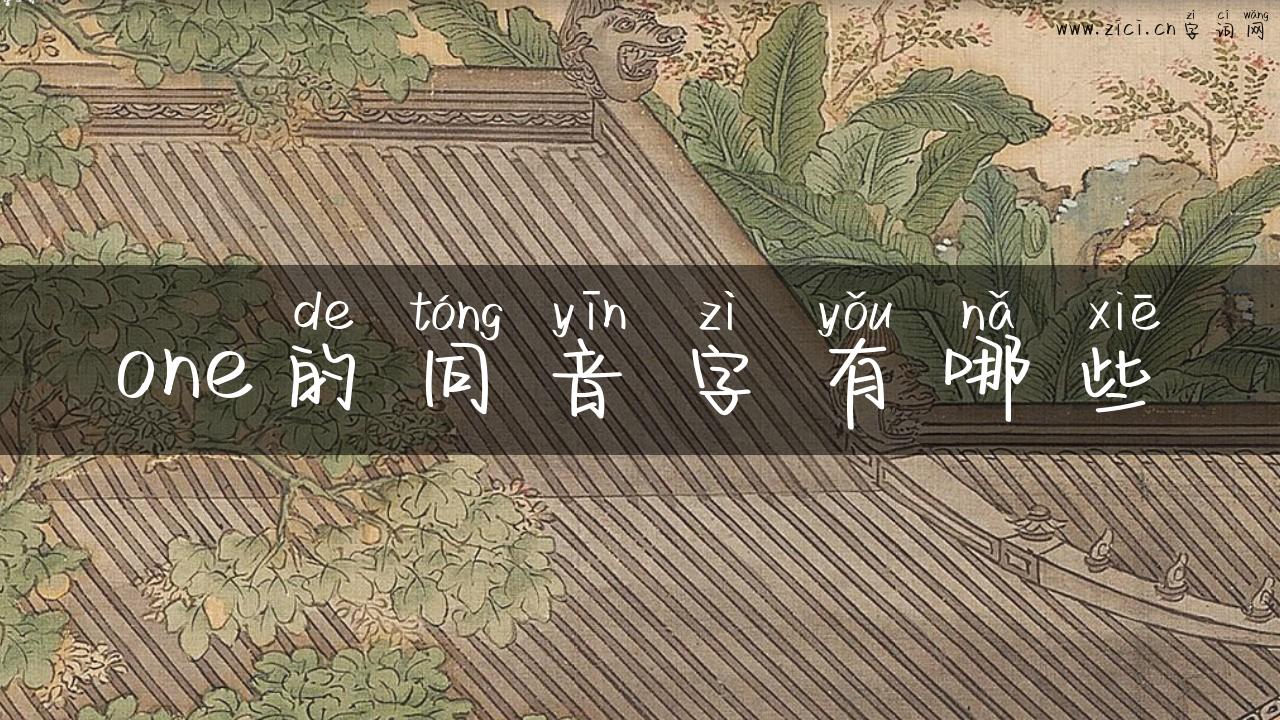 zì cí wǎng
www.zici.cn 字词网
de tóng yīn zì yǒu nǎ xiē
one的同音字有哪些